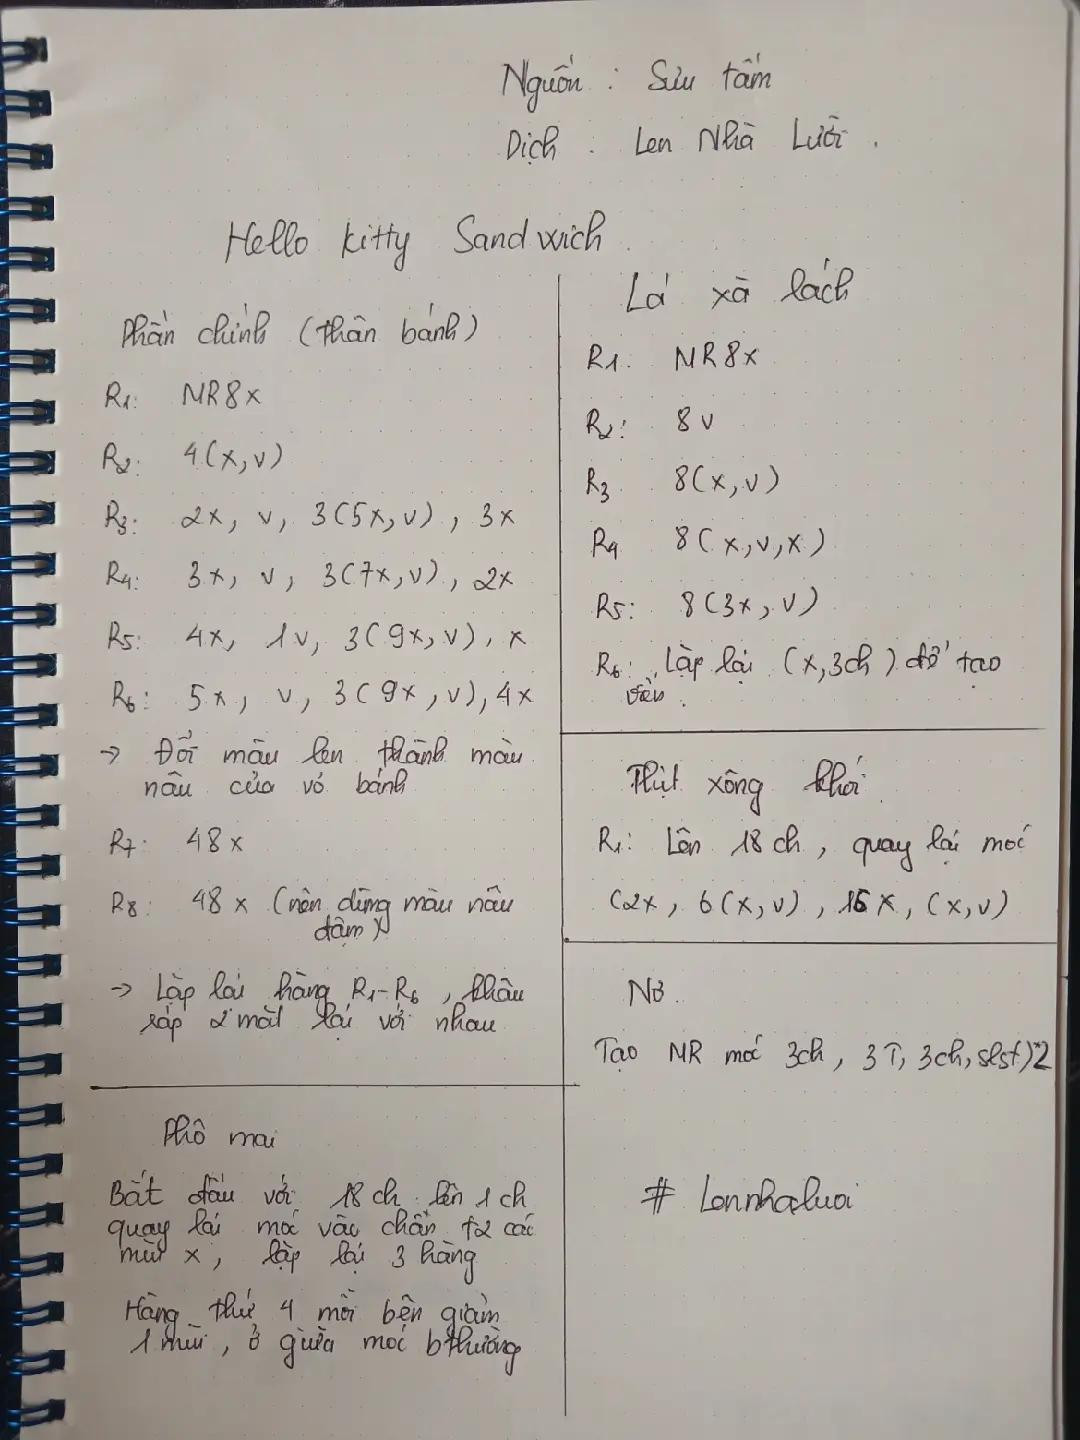 Nguồn : Sưu tầm
Dịch : Len Nhà Lười.
Hello kitty Sandwich
Phần chính (thân bánh)
R1: MR8x
R2: 4(x,v)
R3: 2x, v, 3(5x,v), 3x
R4: 3x, v, 3(7x,v), 2x
R5: 4x, 1v, 3(9x,v), x
R6: 5x, v, 3(9x,v), 4x
→ Đổi màu len thành màu
nâu của vỏ bánh
R7: 48x
R8: 48x (nên dùng màu nâu
đậm)
→ Lặp lại hàng R1-R6, khâu
ráp 2 mặt lại với nhau
Phô mai
Bắt đầu với 18ch lên 1ch
quay lại móc vào chân t2 các
mũi x, lặp lại 3 hàng
Hàng thứ 4 mỗi bên giảm
1 mũi, ở giữa móc bthường
Lá xà lách
R1: MR8x
R2: 8v
R3 8(x,v)
R4 8(x,v,x)
R5: 8(3x,v)
R6: Lặp lại (x,3ch) để tạo
viền.
Thịt xông khói
R1: Lên 18ch, quay lại móc
(2x, 6(x,v), 15x, (x,v)
Nơ
Tạo MR móc 3ch, 3T, 3ch, slst)*2
# Lennhaluoi